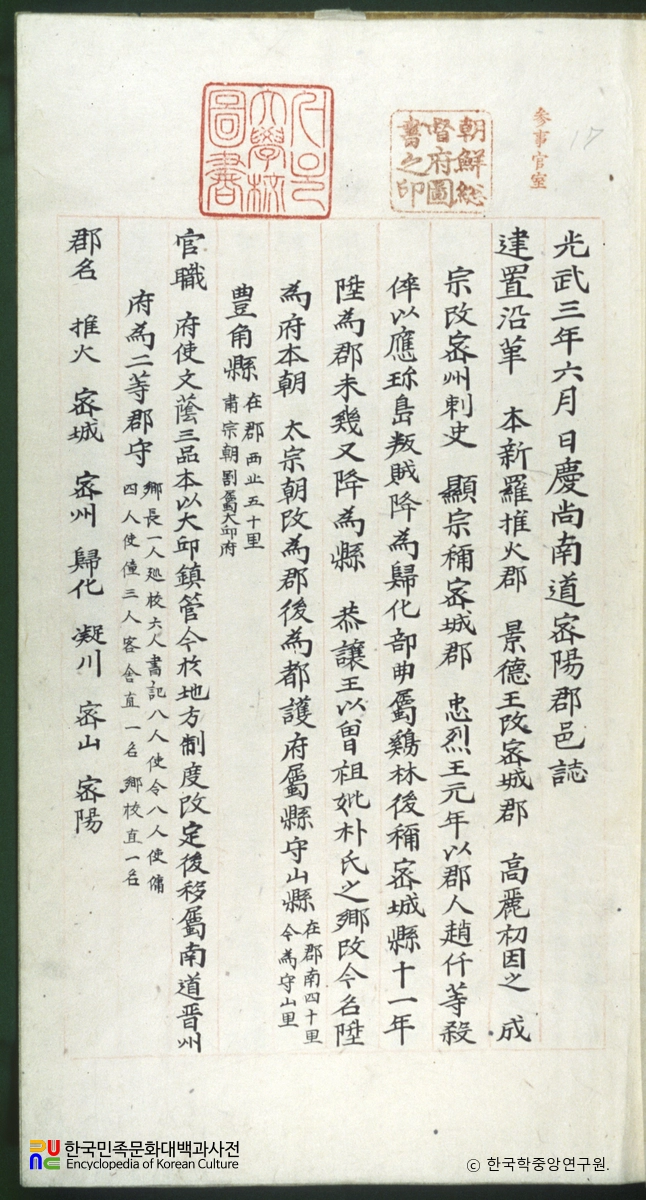 参事官室
17
朝鮮総
督府圖
書之印
光武三年六月 日慶尚南道密陽郡邑誌
建置沿革 本新羅推火郡 景德王改密城郡 高麗初因之 成
宗改密州刺史 顯宗稱密城郡 忠烈王元年以郡人趙仟等殺
倅以應珎島叛賊降為歸化部曲屬鷄林後稱密城縣十一年
陞為郡未幾又降為縣 恭讓王以曾祖妣朴氏之鄉改今名陞
為府本朝 太宗朝改為郡後為都護府屬縣守山縣 在郡南四十里
今為守山里
豊角縣 在郡西北五十里
肅宗朝割屬大邱府
官職 府使文蔭三品本以大邱鎮管今於地方制度改定後移屬南道晋州
府為二等郡守 鄉長一人廵校六人書記八人使令八人使傭
四人使僮三人客舍直一名鄉校直一名
郡名 推火 密城 密州 歸化 凝川 密山 密陽
한국민족문화대백과사전
Encyclopedia of Korean Culture
ⓒ 한국학중앙연구원.